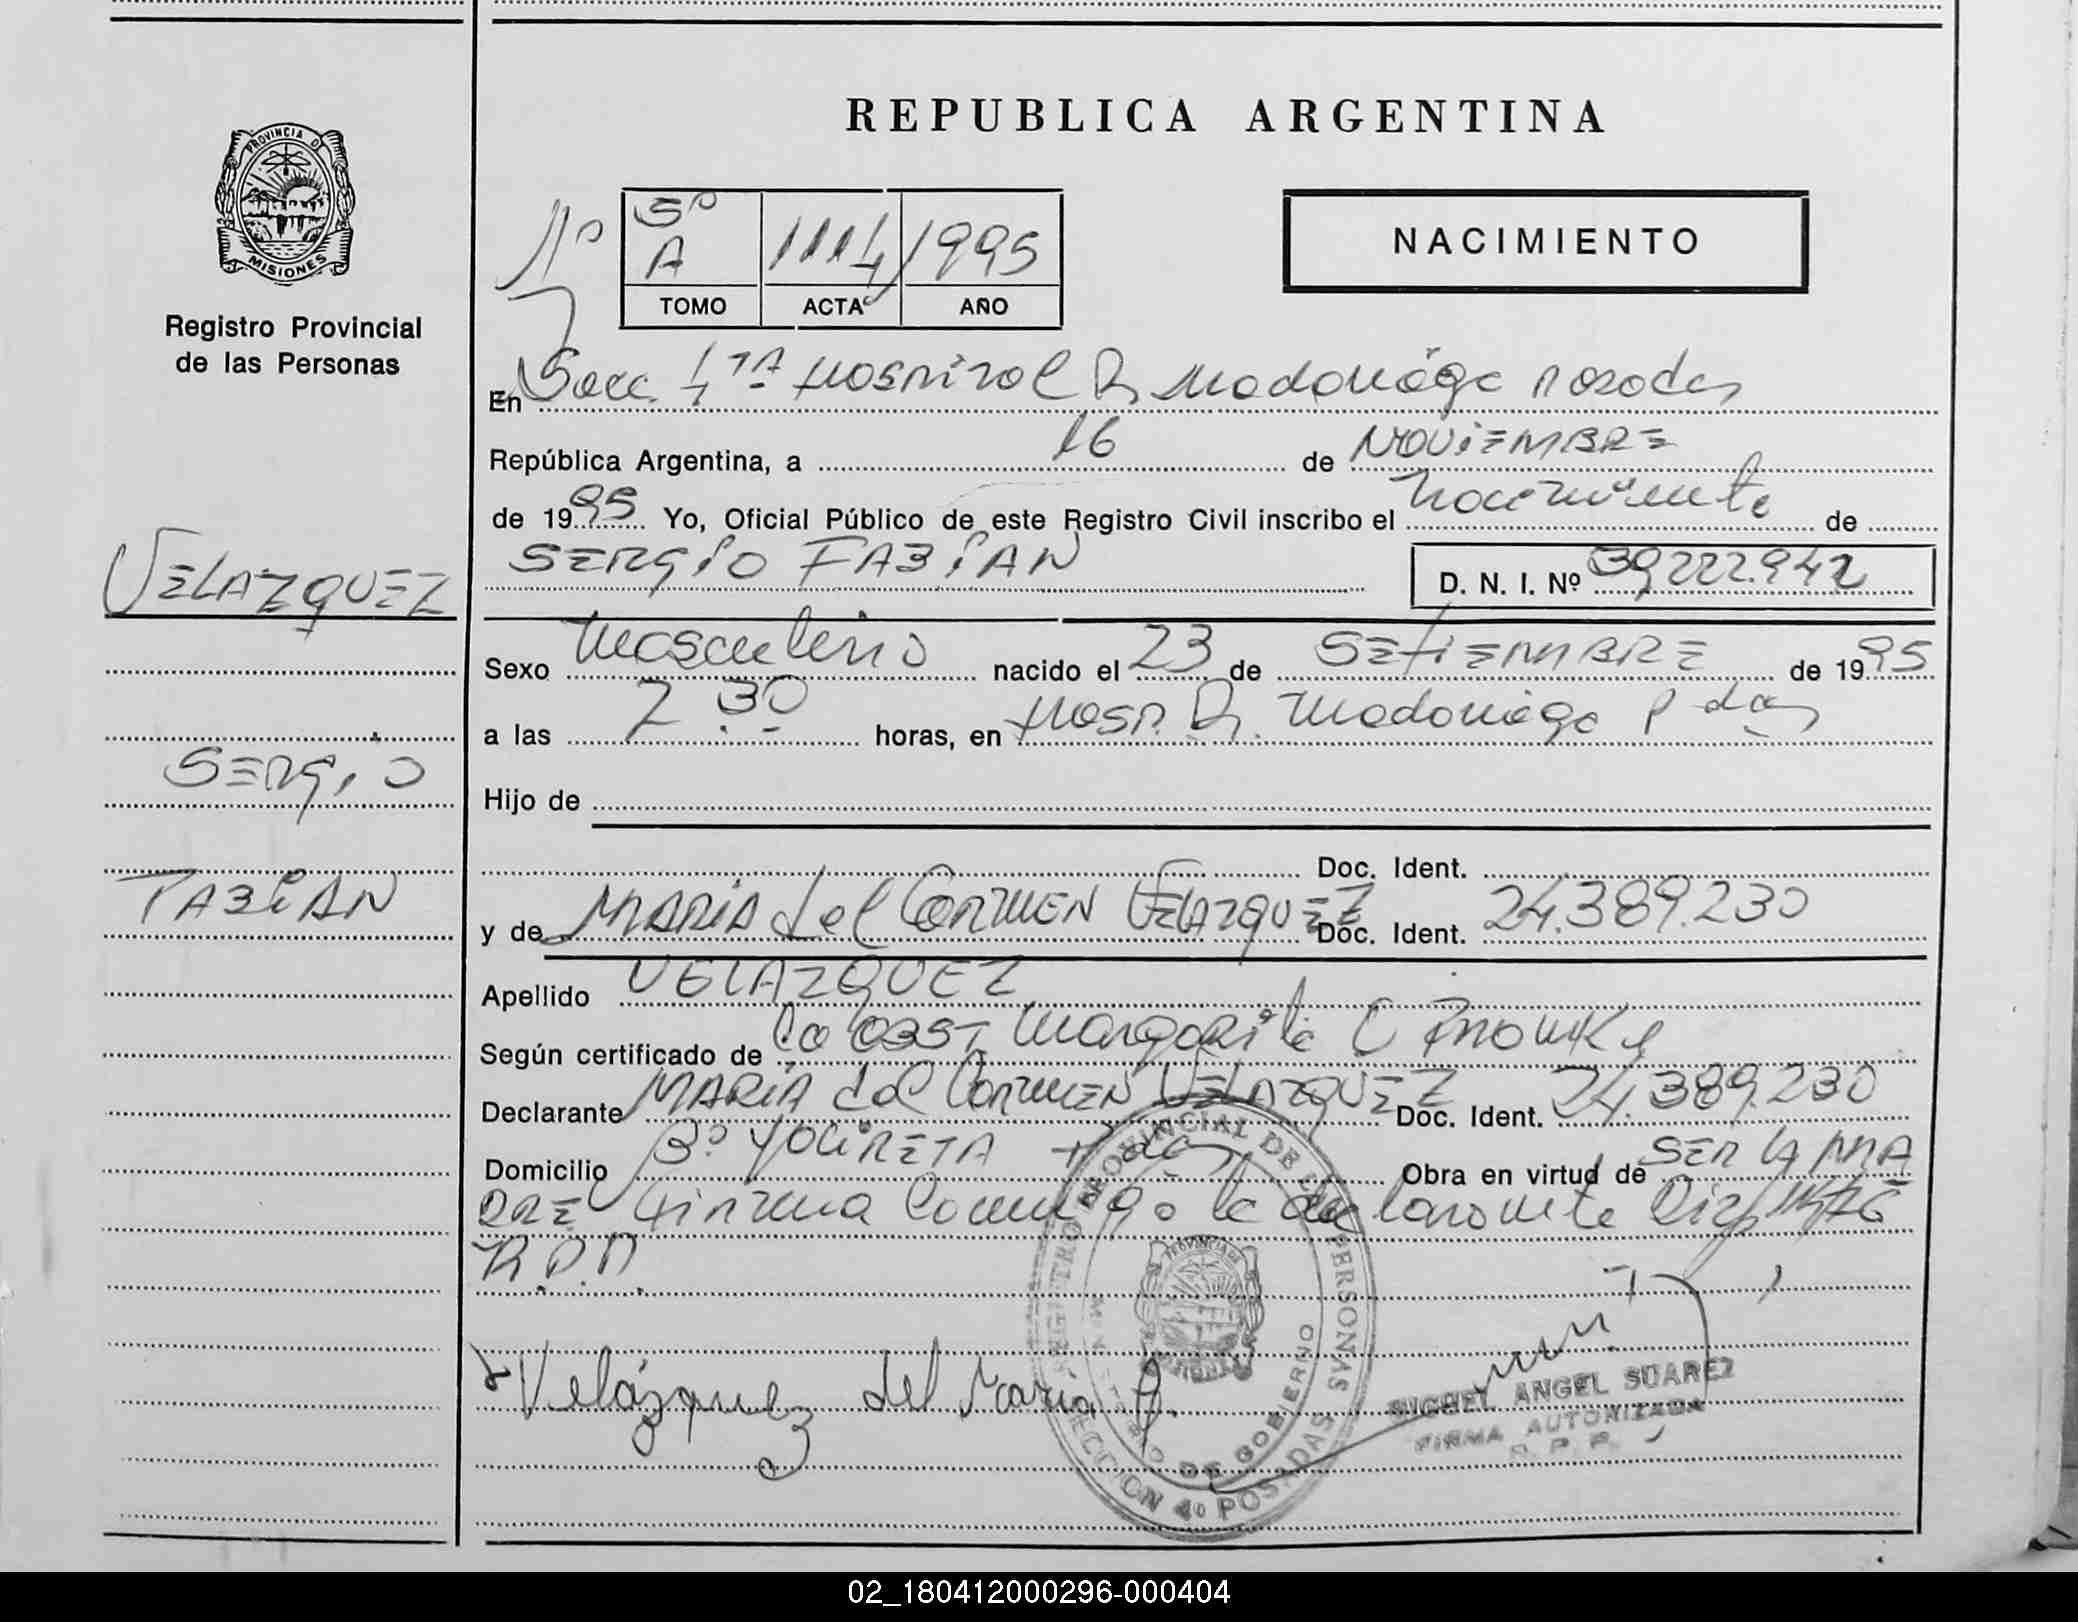 REPUBLICA ARGENTINA
PROVINCIA DE
MISIONES
Registro Provincial
de las Personas
Nº
5º
A
1114
1995
TOMO ACTA AÑO
NACIMIENTO
En Secc. 4TA Hospital Dr Madariaga Posadas
República Argentina, a 16 de NOVIEMBRE
de 1995 Yo, Oficial Público de este Registro Civil inscribo el nacimiento de
SERGIO FABIAN
D. N. I. Nº 39.222.942
VELAZQUEZ
SERGIO
FABIAN
Sexo Masculino nacido el 23 de SETIEMBRE de 1995
a las 7 30 horas, en Hosp. Dr. Madariaga Pdas
Hijo de
Doc. Ident.
y de MARIA del CARMEN VELAZQUEZ Doc. Ident. 24.389.230
Apellido VELAZQUEZ
Según certificado de La OBST. Margarita
Declarante MARIA del CARMEN VELAZQUEZ Doc. Ident. 24.389.230
Domicilio Bº YACIRETA Pdas Obra en virtud de SER LA MA
DRE Firma conmigo la declarante
Velázquez del María
REGISTRO PROVINCIAL DE LAS PERSONAS
MINISTERIO DE GOBIERNO
SECCION 4º POSADAS
MIGUEL ANGEL SUAREZ
FIRMA AUTORIZADA
R. P. P.
02_180412000296-000404